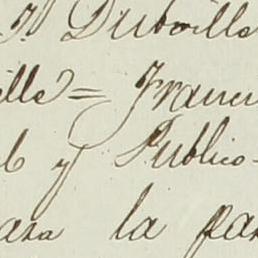 Dubville
ille = Franci
b y Publico-
ara la par